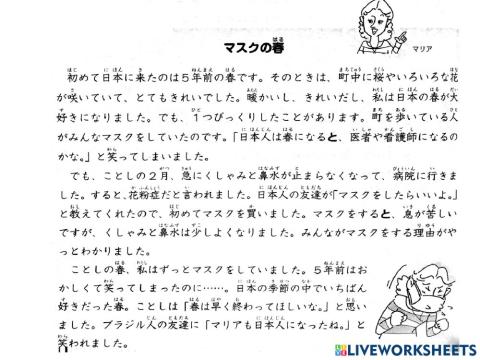 マスクの春
マリア
初めて日本に来たのは5年前の春です。そのときは、町中に桜やいろいろな花
が咲いていて、とてもきれいでした。暖かいし、きれいだし、私は日本の春が大
好きになりました。でも、1つびっくりしたことがあります。町を歩いている人
がみんなマスクをしていたのです。「日本人は春になると、医者や看護師になるの
かな。」と笑ってしまいました。
でも、ことしの2月、急にくしゃみと鼻水が止まらなくなって、病院に行きま
した。すると、花粉症だと言われました。日本人の友達が「マスクをしたらいいよ。」
と教えてくれたので、初めてマスクを買いました。マスクをすると、息が苦しい
ですが、くしゃみと鼻水は少しよくなりました。みんながマスクをする理由がや
っとわかりました。
ことしの春、私はずっとマスクをしていました。5年前はお
かしくて笑ってしまったのに……。日本の季節の中でいちばん
好きだった春。ことしは「春は早く終わってほしいな。」と思い
ました。ブラジル人の友達に「マリアも日本人になったね。」と
笑われました。
LIVEWORKSHEETS